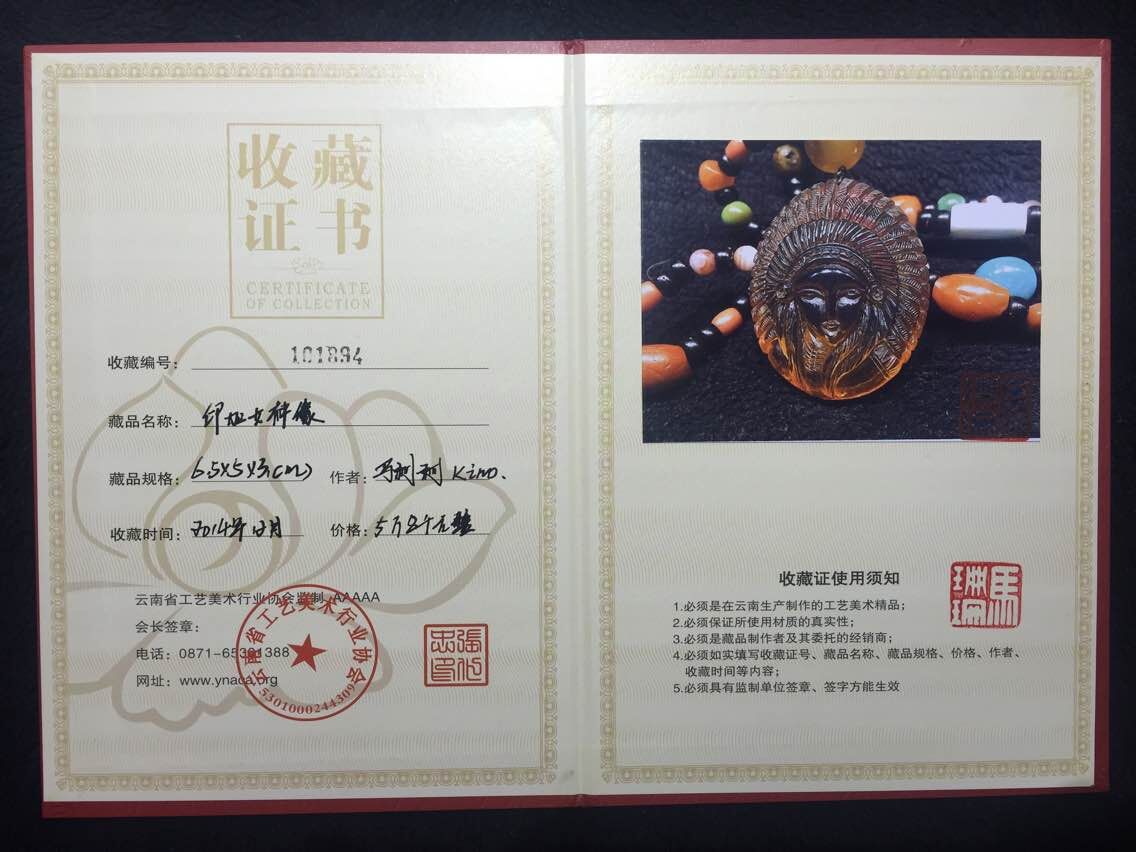 收藏
证书
CERTIFICATE
OF COLLECTION
收藏编号: 101894
藏品名称: 印加女神像
藏品规格: 6.5x5x3(cm) 作者: 马珊珊 Kino.
收藏时间: 2014年12月 价格: 5万8千元整
云南省工艺美术行业协会监制 AAAAA
会长签章:
电话: 0871-65361388
网址: www.ynaca.org
云南省工艺美术行业协会
5301000244309
收藏证使用须知
1.必须是在云南生产制作的工艺美术精品;
2.必须保证所使用材质的真实性;
3.必须是藏品制作者及其委托的经销商;
4.必须如实填写收藏证号、藏品名称、藏品规格、价格、作者、
收藏时间等内容;
5.必须具有监制单位签章、签字方能生效